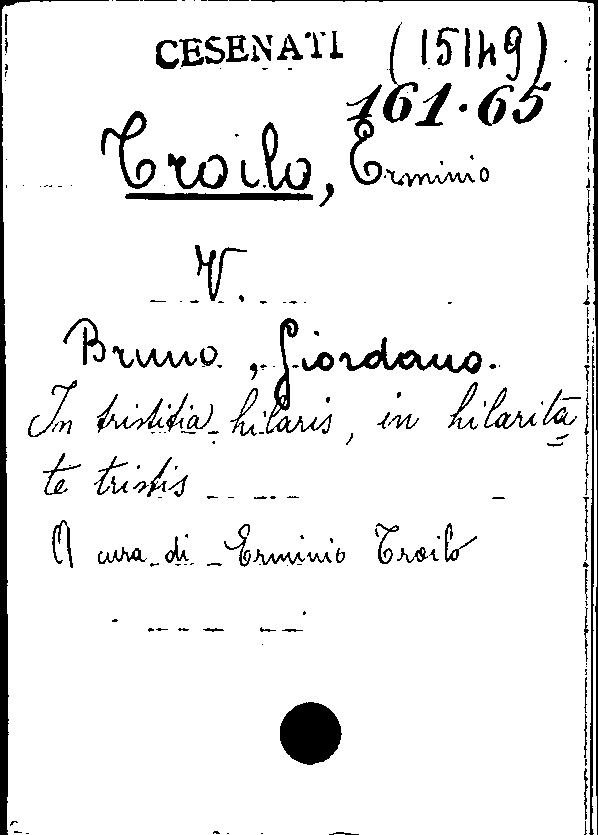 CESENATI (15149)
161·65
Troilo, Erminio
V.
Bruno, Giordano.
In tristitia hilaris, in hilarita=
te tristis
A cura di Erminio Troilo